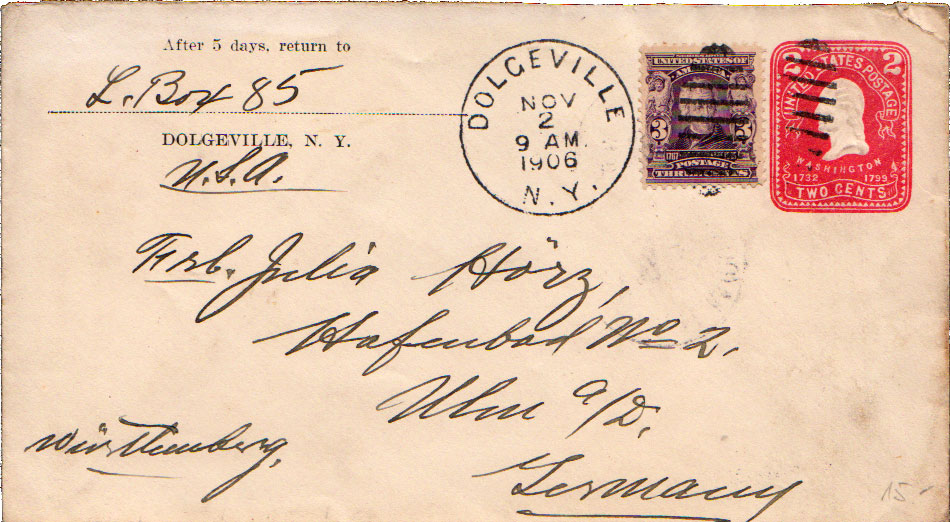 After 5 days, return to
L. Box 85
DOLGEVILLE, N. Y.
U.S.A.
DOLGEVILLE
NOV
2
9 AM
1906
N.Y.
UNITED STATES OF
AMERICA
3 3
POSTAGE
THREE CENTS
2 UNITED STATES POSTAGE 2
WASHINGTON
1732 1799
TWO CENTS
Frl. Julia Hörz,
Hafenbad No 2.
Ulm a/D.
Württemberg.
Germany
15